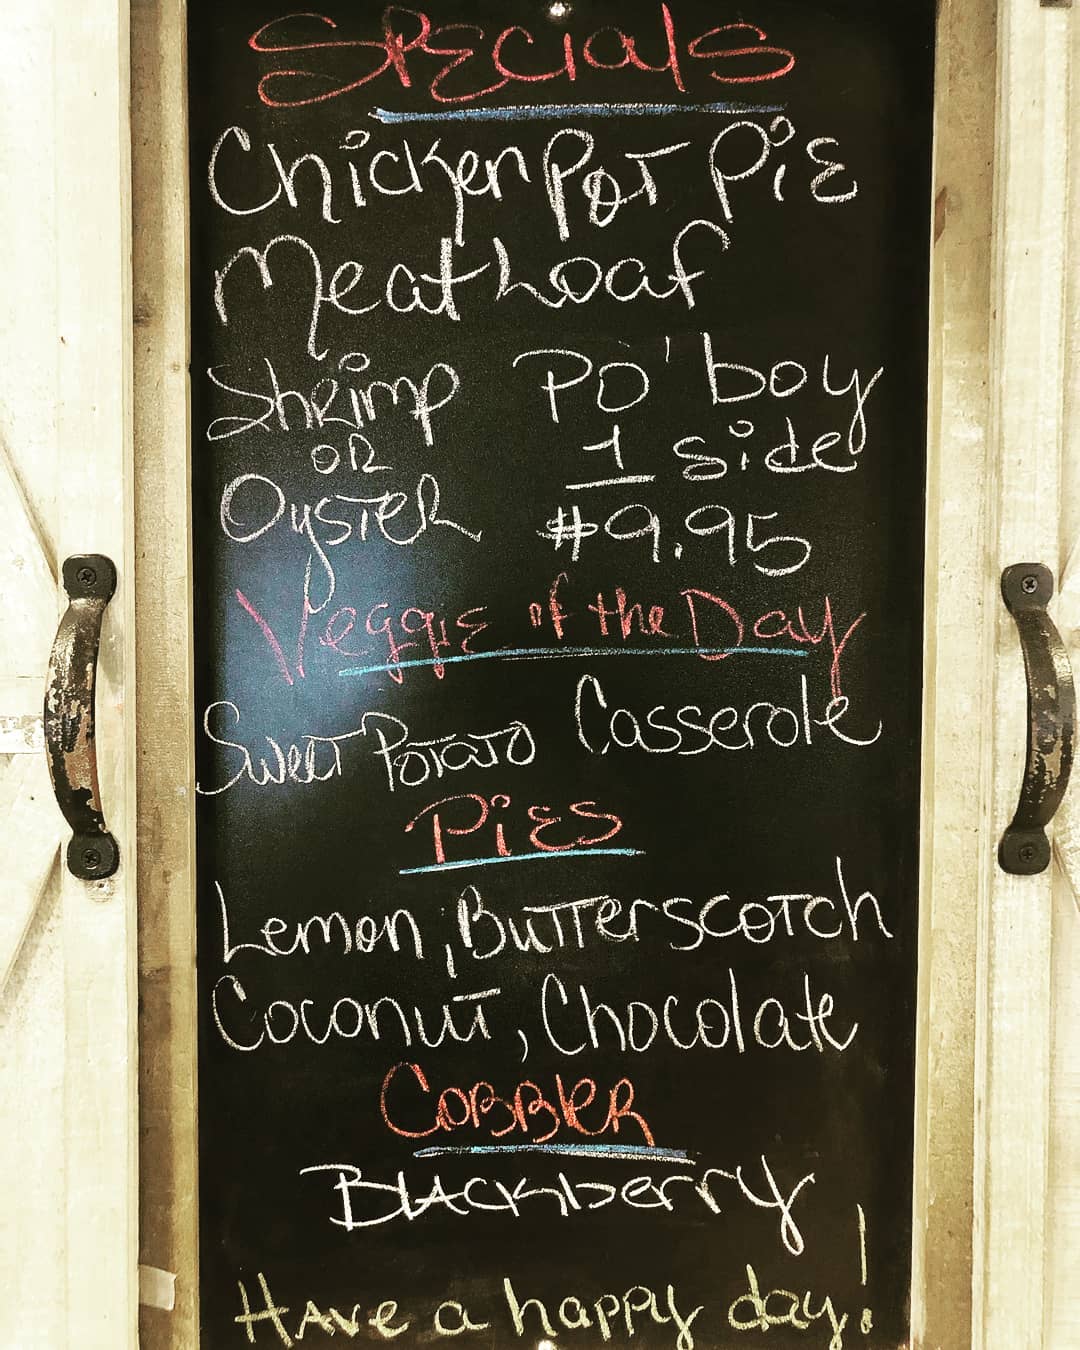 Specials
Chicken Pot Pie
Meat Loaf
Shrimp Po' boy
OR 1 side
Oyster $9.95
Veggie of the Day
Sweet Potato Casserole
Pies
Lemon, Butterscotch
Coconut, Chocolate
Cobbler
Blackberry
Have a happy day!